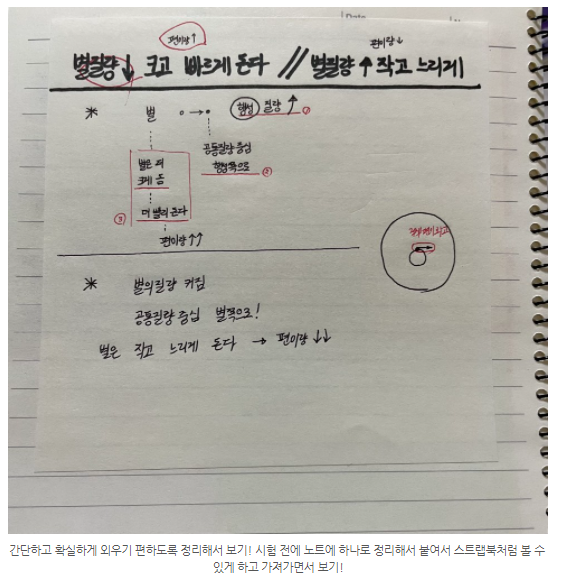 Date
편이량↑ 편이량↓
별질량↓ 크고 빠르게 돈다 // 별질량↑ 작고 느리게
* 별 ○→• 행성 질량↑ ①
공통질량 중심
행성쪽으로 ②
별은 더
크게 돔
③ 더 빨리 돈다
편이량↑↑
* 별의 질량 커짐
공통질량 중심 별쪽으로!
별은 작고 느리게 돈다 → 편이량↓↓
간단하고 확실하게 외우기 편하도록 정리해서 보기! 시험 전에 노트에 하나로 정리해서 붙여서 스트랩북처럼 볼 수
있게 하고 가져가면서 보기!